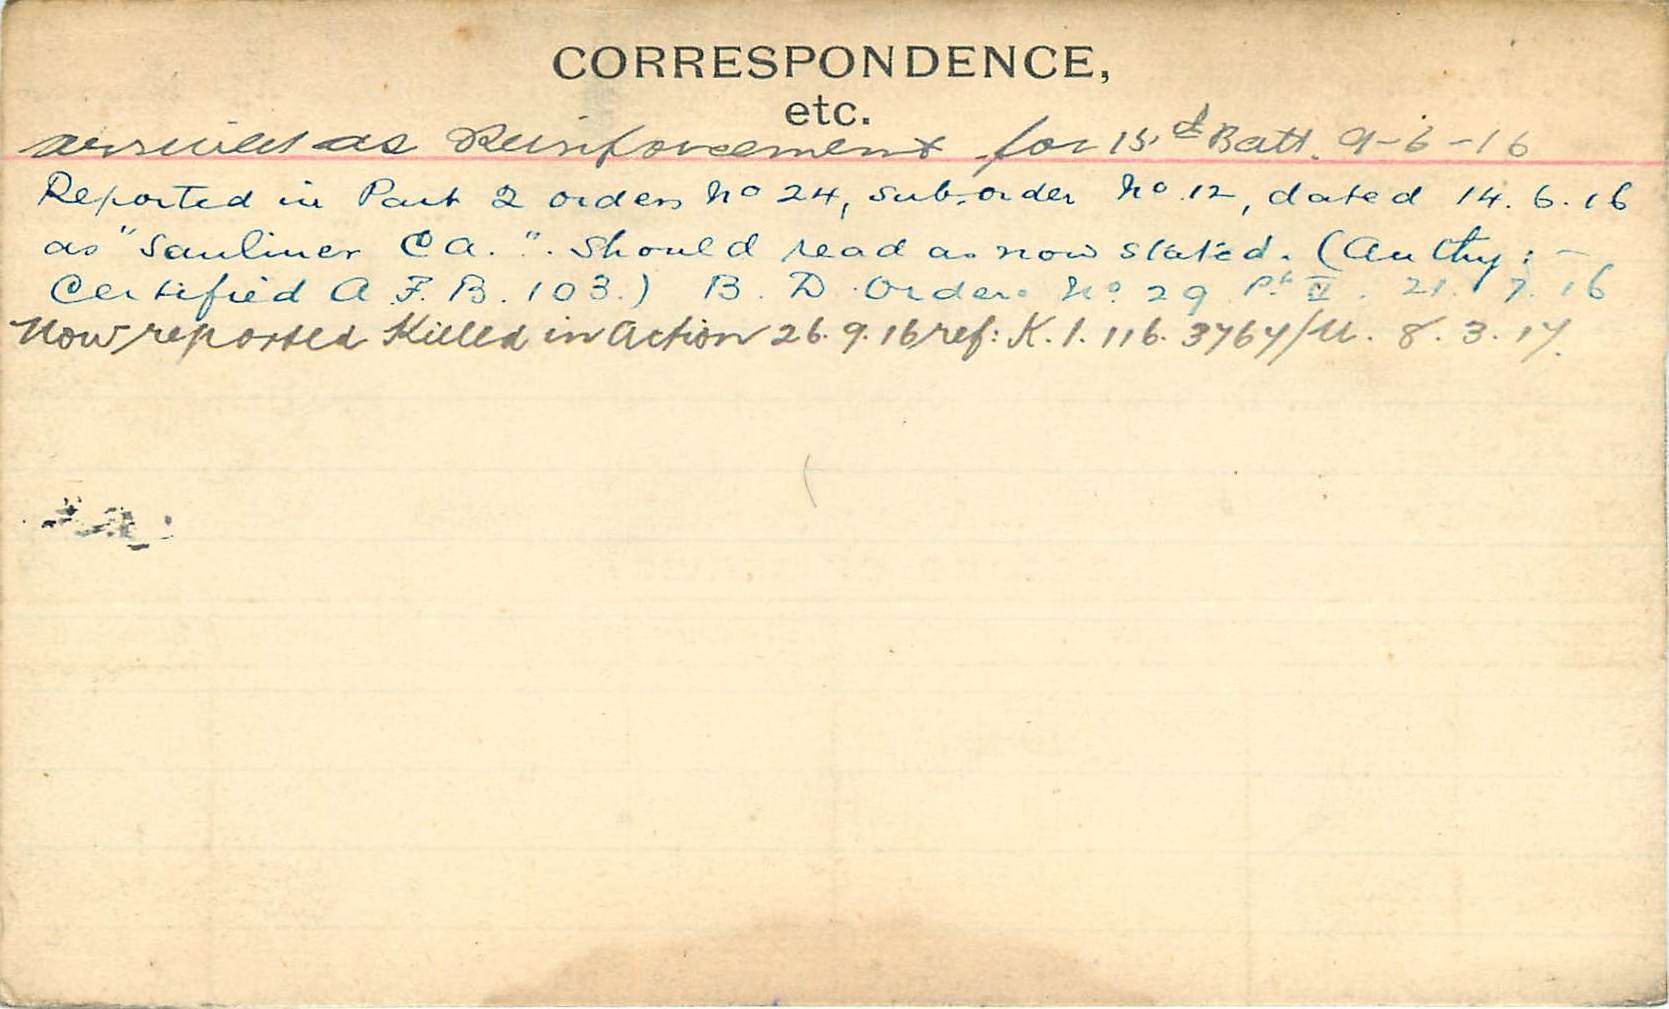 CORRESPONDENCE,
etc.
arrived as Reinforcement for 15th Batt. 9-6-16
Reported in Part 2 orders No 24, sub-order No 12, dated 14.6.16
as "Sauliner C a.". Should read as now stated. (Authy: -
Certified A F. B. 103.) B. D Orders No. 29 Pt II. 21. 7. 16
Now reported Killed in Action 26.9.16 ref: K.1.116. 3764/M. 8.3.17.